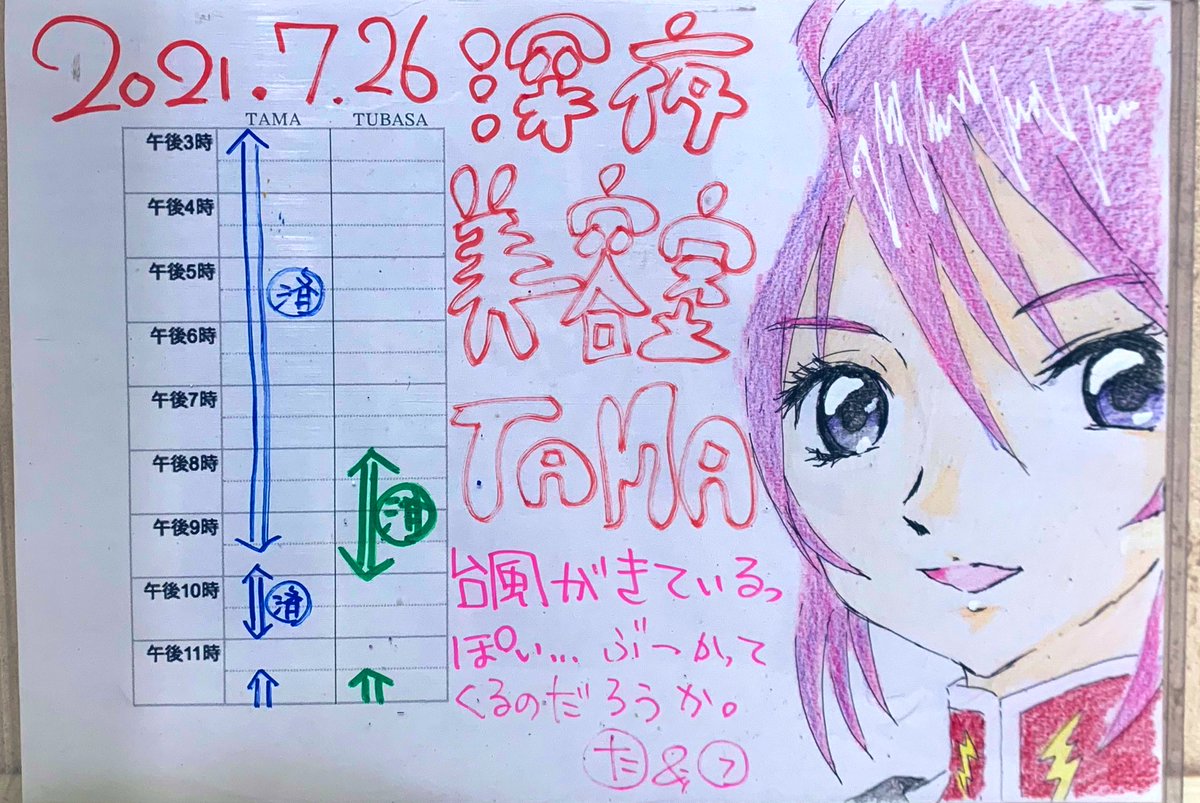 2021.7.26
深夜
美容室
TAMA
TAMA TUBASA
午後3時
午後4時
午後5時
済
午後6時
午後7時
午後8時
済
午後9時
午後10時
済
午後11時
台風がきているっ
ぽい... ぶつかって
くるのだろうか。
た&つ